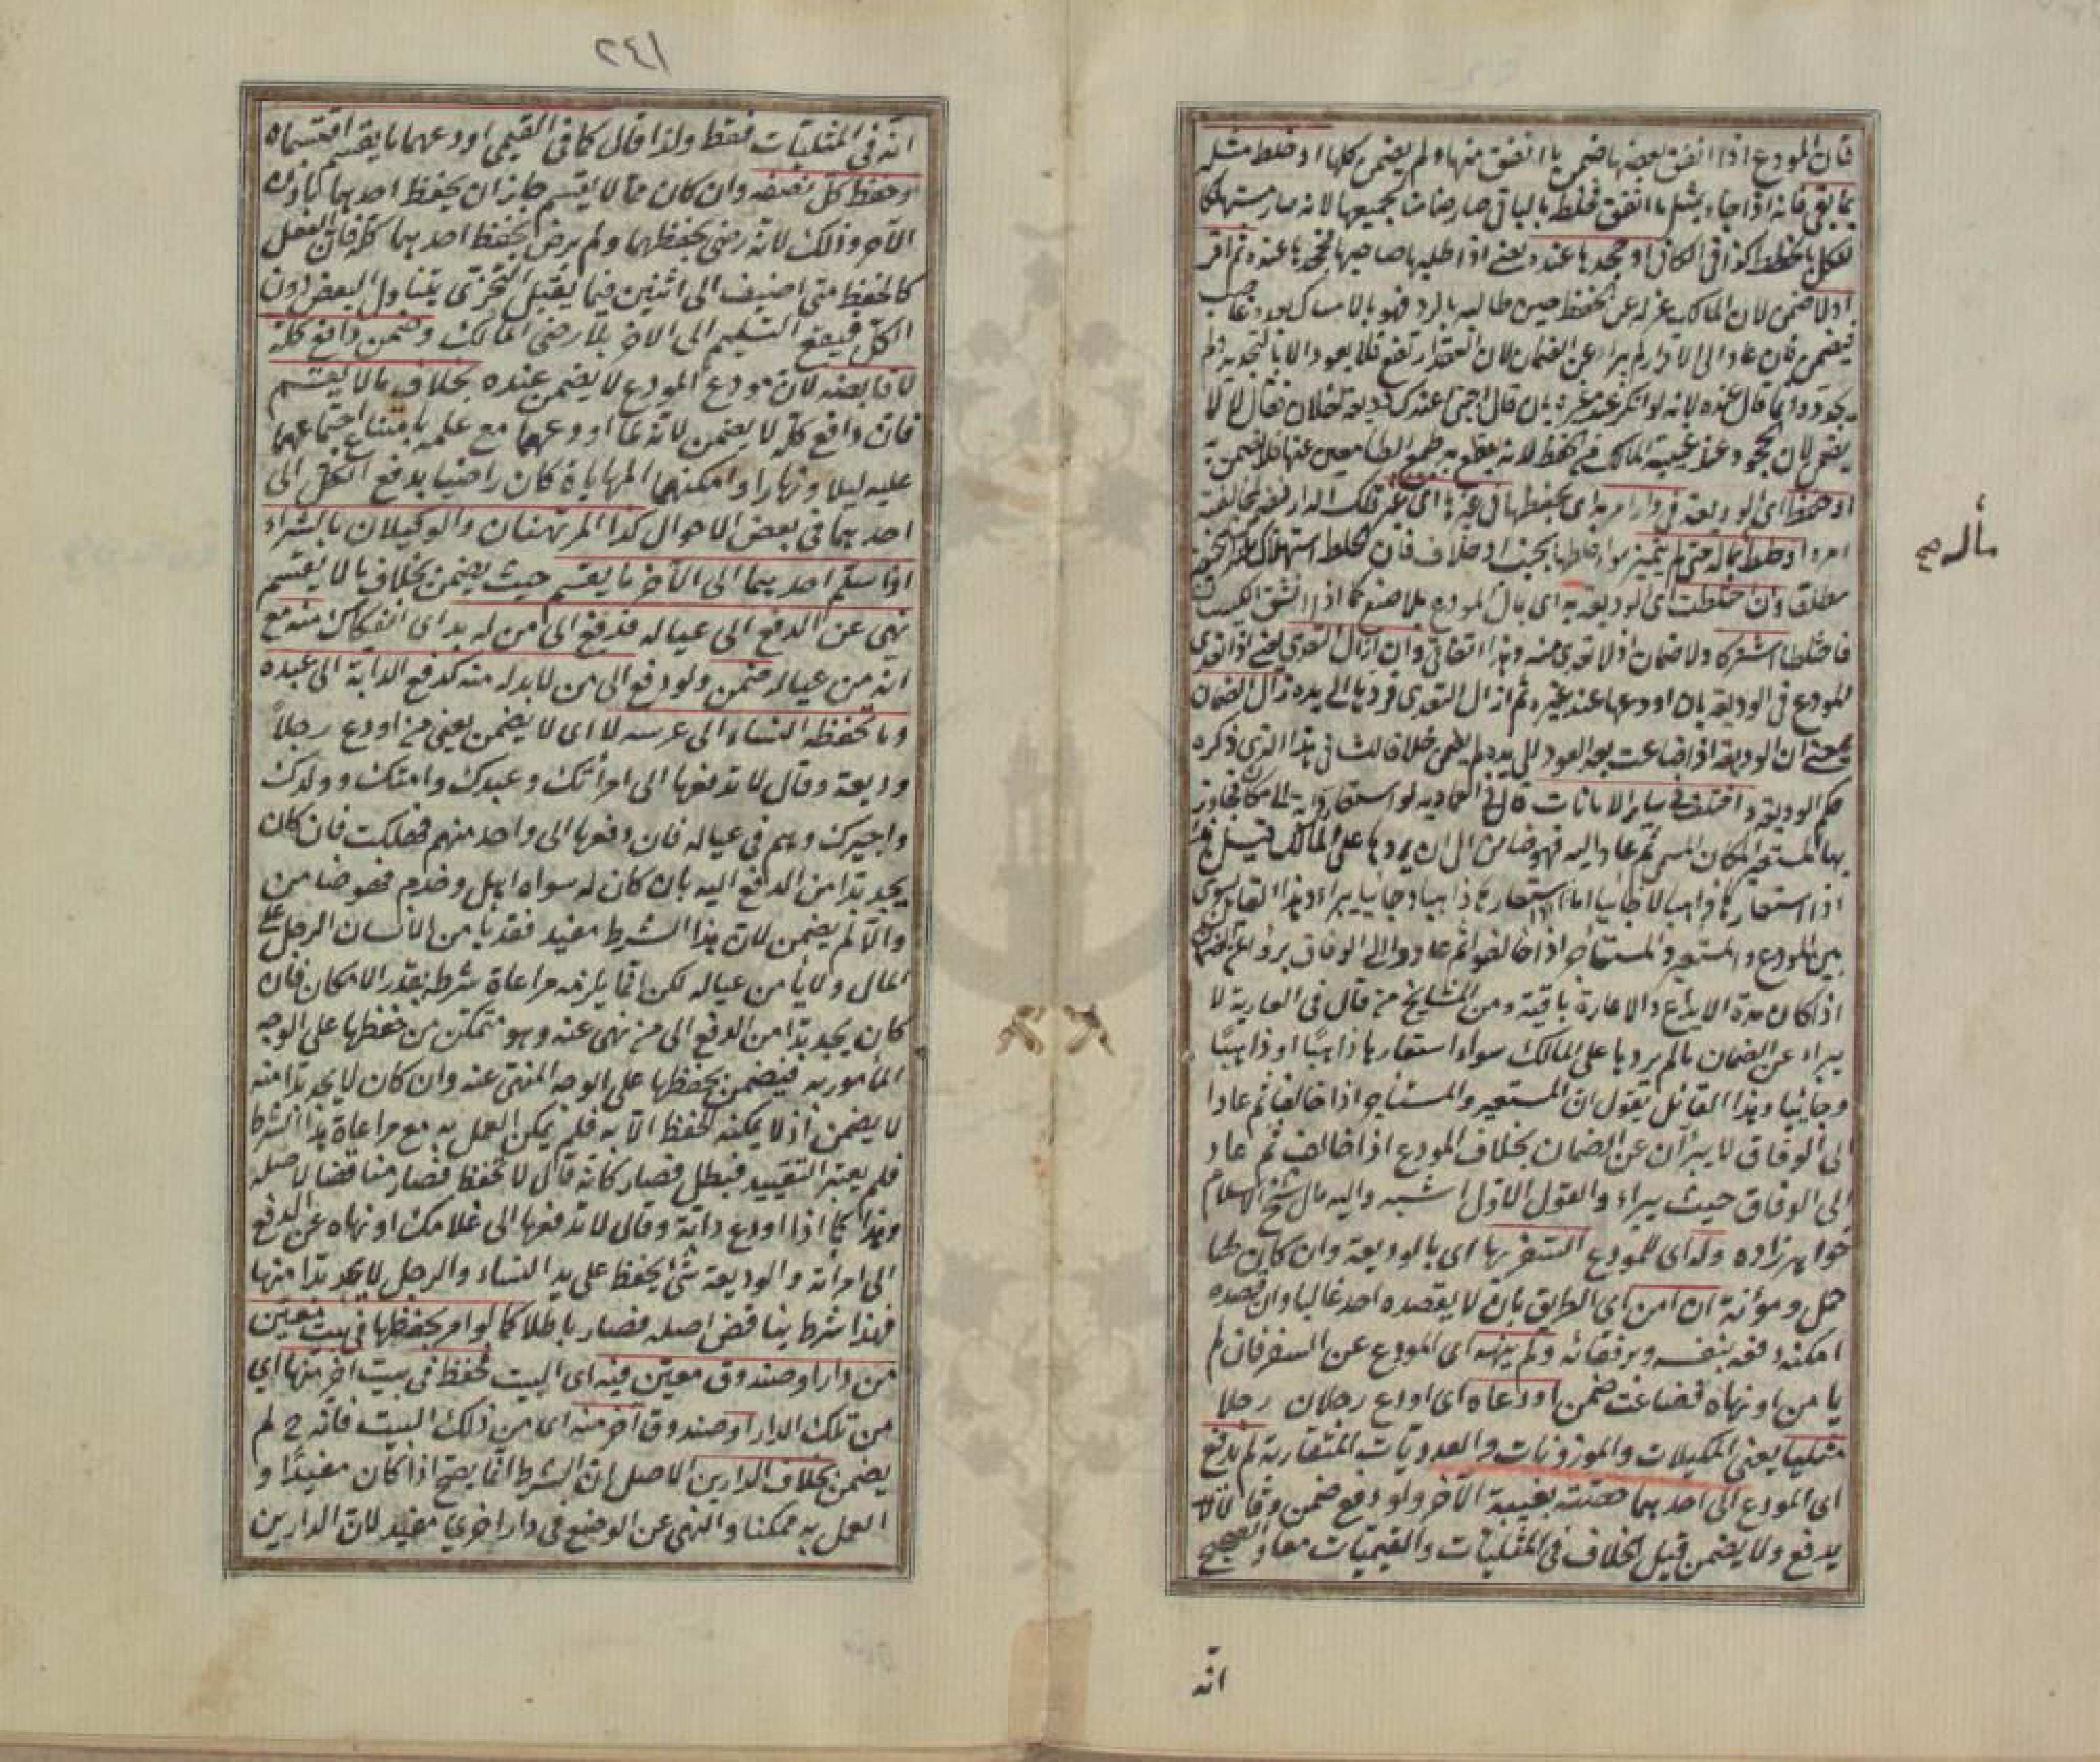 فان المودع اذا انفق بعضها ضمن ما انفق منها ولم يضمن كلها او خلط مثله
بما بقي فانه اذا جاء بمثل ما انفق فخلط بالباقي صار ضامنا لجميعها لانه صار مستهلكا
للكل بالخلط كذا في الكافي او جحدها عنده يعني اذا طلبها صاحبها فجحدها عنده ثم اقر
او لا ضمن لان المالك عزله عن الحفظ حين طالبه بالرد فهو بالامساك بعده غاصب
فيضمن فان عاد الى الاقرار لم يبراء عن الضمان لان العقد ارتفع فلا يعود الا بالتجديد ولم
يوجد وانما قال عنده لانه لو انكر عند غيره بان قال اجنبي عندك وديعة لفلان فقال لا لا
يضمن لان الجحود عند غيبة المالك من الحفظ لانه يقطع به طمع الطامعين عنها فلا يضمن به
او حفظ اى الوديعة في دار امر به اى بحفظها في غيرها اى غير تلك الدار فيضمن لمخالفته
امره او خلط بماله حتى لم يتميز سواء خلطها بجنسه او خلافه فان الخلط استهلاك
مطلقا وان اختلطت اى الوديعة به اى بمال المودع بلا صنع كما اذا انشق الكيسان
فاختلطا اشتركا ولا ضمان اذ لا تعدى منه وهذا اتفاقي وان ازال التعدي يعني اذا تعدى
المودع في الوديعة بان اودعها عند غيره ثم ازال التعدي فردها الى يده زال الضمان
بمعنى ان الوديعة اذا ضاعت بعد العود الى يده لم يضمن خلافا للشافعي هذا الذي ذكره
حكم الوديعة واختلف في سائر الامانات قال في العمادية لو استعار دابة الى مكان فجاوز
بها المستعير المكان المسمى ثم عاد اليه فهو ضامن الى ان يردها على المالك قيل هذا
اذا استعارها ذاهبا لا جائيا اما اذا استعارها ذاهبا وجائيا يبراء وهذا القائل يسوي
بين المودع والمستعير والمستأجر اذا خالفوا ثم عادوا الى الوفاق برؤا عن الضمان
اذا كان مدة الايداع والاعارة باقية ومن المشايخ من قال في العارية لا
يبراء عن الضمان ما لم يردها على المالك سواء استعارها ذاهبا او ذاهبا
وجائيا وهذا القائل يقول ان المستعير والمستأجر اذا خالفا ثم عادا
الى الوفاق لا يبرأن عن الضمان بخلاف المودع اذا خالف ثم عاد
الى الوفاق حيث يبراء والقول الاول اشبه واليه مال شيخ الاسلام
خواهر زاده وله اى للمودع السفر بها اى بالوديعة وان كان لها
حمل ومؤنة ان امن اى الطريق بان لا يقصده احد غالبا وان قصده
امكنه دفعه بنفسه وبرفقائه ولم ينهه اى المودع عن السفر فان لم
يامن او نهاه فضاعت ضمن اودعاه اى اودع رجلان رجلا
مثليا يعني المكيلات والموزونات والعدديات المتقاربة لم يدفع
اى المودع الى احدهما حصته بغيبة الآخر ولو دفع ضمن وقالا
يدفع ولا يضمن قيل الخلاف في المثليات والقيميات معا والصحيح
ماله صح
انه
٢٤١
انه في المثليات فقط ولذا قال كما في القيمي اودعهما ما يقسم اقتسماه
وحفظ كل نصفه وان كان مما لا يقسم جاز ان يحفظ احدهما باذن
الآخر وذلك لانه رضي بحفظهما ولم يرض بحفظ احدهما كله فان الفعل
كالحفظ متى اضيف الى اثنين فيما يقبل التجزى يتناول البعض دون
الكل فيقع التسليم الى الاخر بلا رضى المالك وضمن دافع كله
لا قابضه لان مودع المودع لا يضمن عنده بخلاف ما لا يقسم
فان دافع كله لا يضمن لانه لما اودعهما مع علمه بامتناع اجتماعهما
عليه ليلا ونهارا وامكنهما المهاياة كان راضيا بدفع الكل الى
احدهما في بعض الاحوال كذا المرتهنان والوكيلان بالشراء
اذا سلم احدهما الى الآخر ما يقسم حيث يضمن بخلاف ما لا يقسم
نهى عن الدفع الى عياله فدفع الى من له بد اى انفكاك منه مع
انه من عياله ضمن ولو دفع الى من لا بد له منه كدفع الدابة الى عبده
وما تحفظه النساء الى عرسه لا اى لا يضمن يعني من اودع رجلا
وديعة وقال لا تدفعها الى امرأتك وعبدك وامتك وولدك
واجيرك وهم في عياله فان دفعها الى واحد منهم فهلكت فان كان
يجد بدا من الدفع اليه بان كان له سواه اهل وخدم فهو ضامن
والا لم يضمن لان هذا الشرط مفيد فقد يا من الانسان الرجل على
المال ولا يامن عياله لكن انما يلزمه مراعاة شرطه بقدر الامكان فان
كان يجد بدا من الدفع الى من نهى عنه وهو متمكن من حفظها على الوجه
المأمور به فيضمن بحفظها على الوجه المنهى عنه وان كان لا يجد بدا منه
لا يضمن اذ لا يمكنه الحفظ الا به فلم يمكن العمل به مع مراعاة هذا الشرط
فلم يعتبر التقييد فبطل فصار كانه قال لا تحفظ فصار مناقضا لاصله
وهذا كما اذا اودع دابة وقال لا تدفعها الى غلامك او نهاه عن الدفع
الى امراته والوديعة شئ يحفظ على يد النساء والرجل لا يجد بدا منها
فهذا شرط يناقض اصله فصار باطلا كما لو امر بحفظها في بيت معين
من دار او صندوق معين فيه اى البيت فحفظ في بيت اخر منها اى
من تلك الدار او صندوق آخر منه اى من ذلك البيت فانه ح لم
يضمن بخلاف الدارين الاصل ان الشرط انما يصح اذا كان مفيدا و
العمل به ممكنا والنهى عن الوضع في دار اخرى مفيد لان الدارين